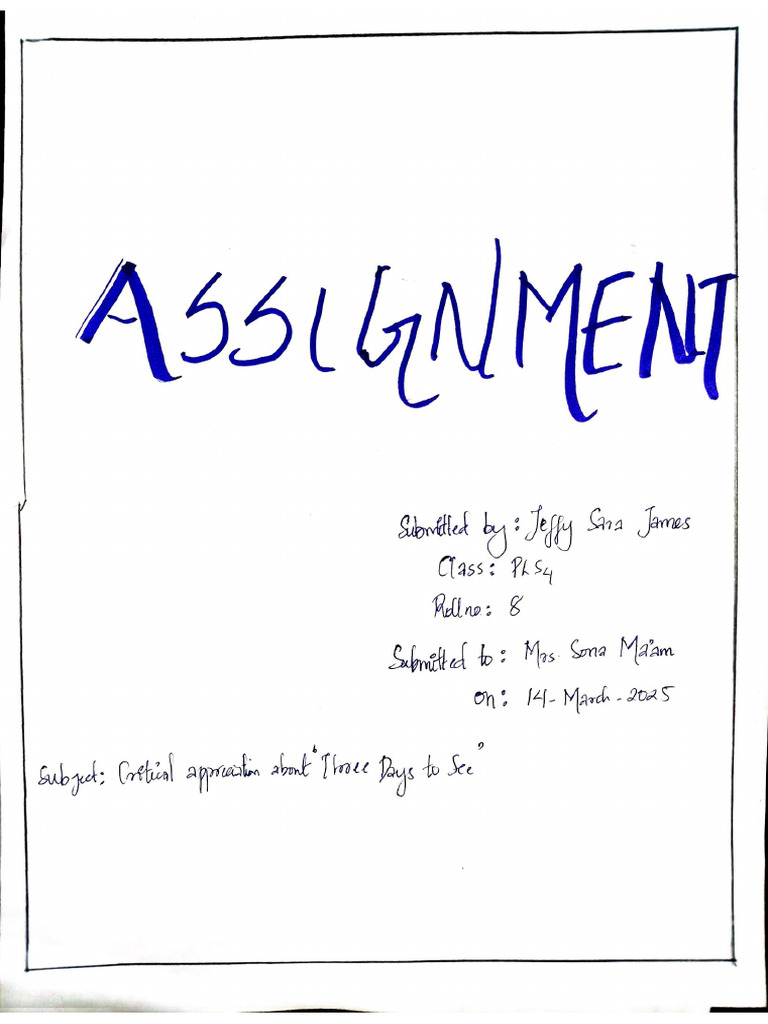 ASSIGNMENT
Submitted by: Jeffy Sara James
Class: PLS4
Roll no: 8
Submitted to: Mrs. Sona Ma'am
on: 14-March-2025
Subject: Critical appreciation about "Three Days to See"